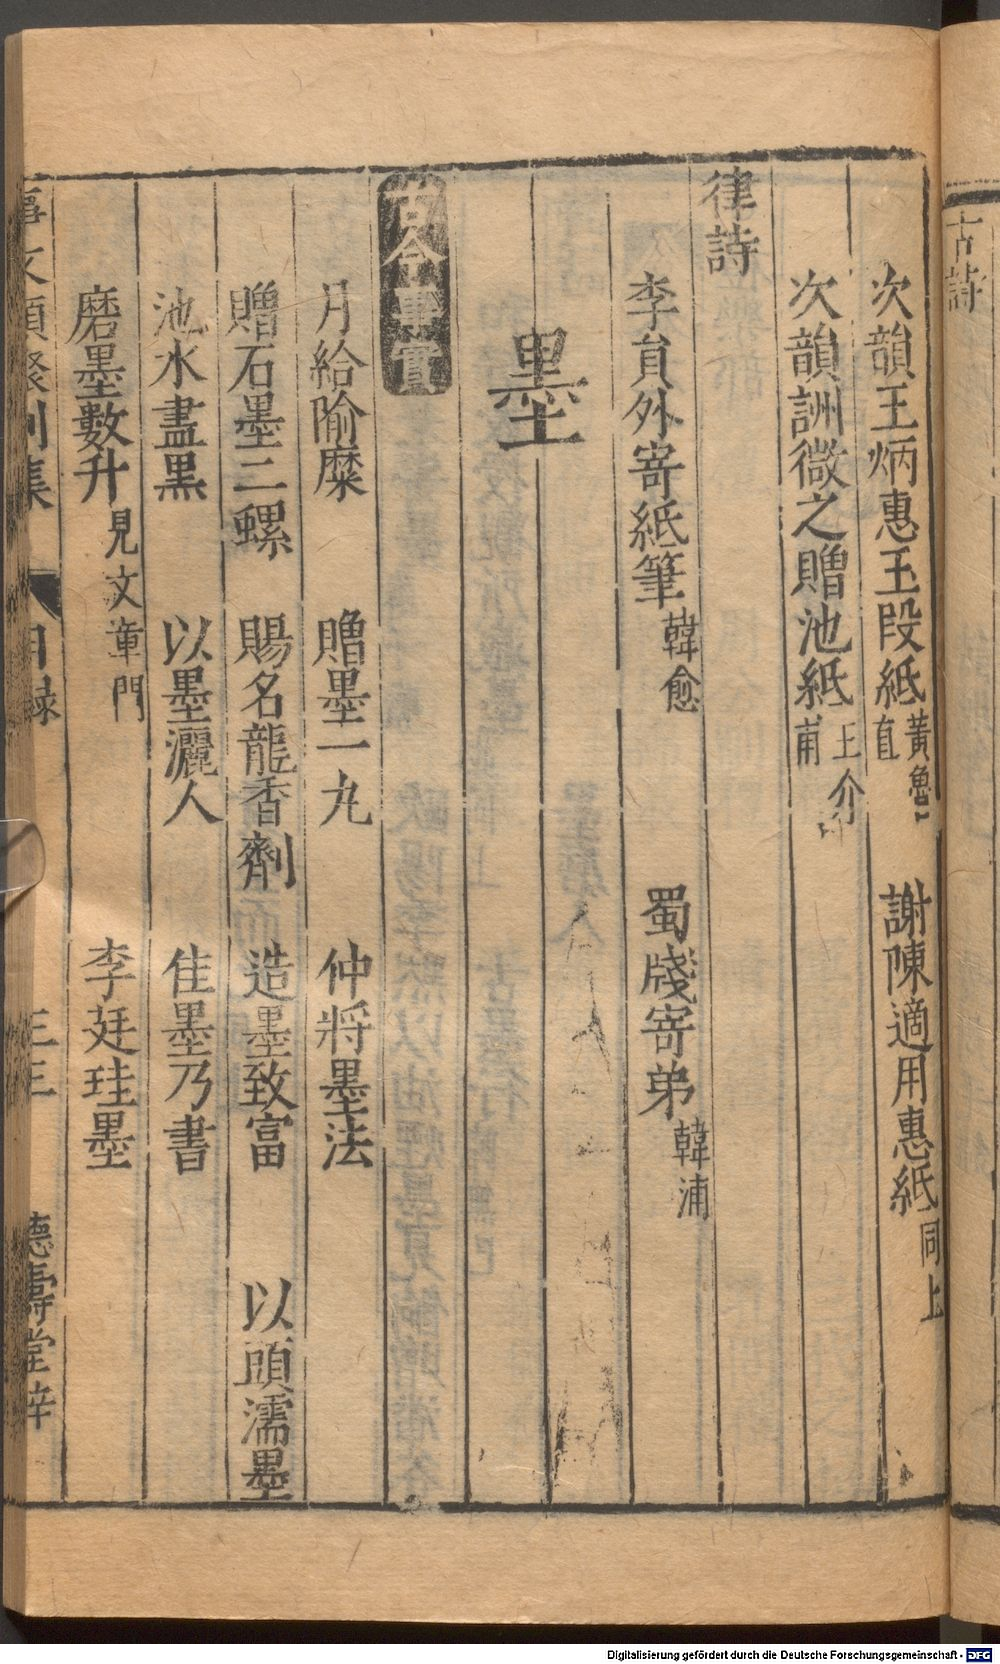 古詩
次韻王炳惠玉段紙 黃魯直 謝陳適用惠紙 同上
次韻詶微之贈池紙 王介甫
律詩
李員外寄紙筆 韓愈 蜀牋寄弟 韓浦
墨
古今事實
月給隃糜 贈墨一丸 仲將墨法
贈石墨二螺 賜名龍香劑 造墨致富 以頭濡墨
池水盡黑 以墨灑人 佳墨乃書
磨墨數升 見文章門 李廷珪墨
事文類聚別集 目錄 德壽堂梓
Digitalisierung gefördert durch die Deutsche Forschungsgemeinschaft - DFG